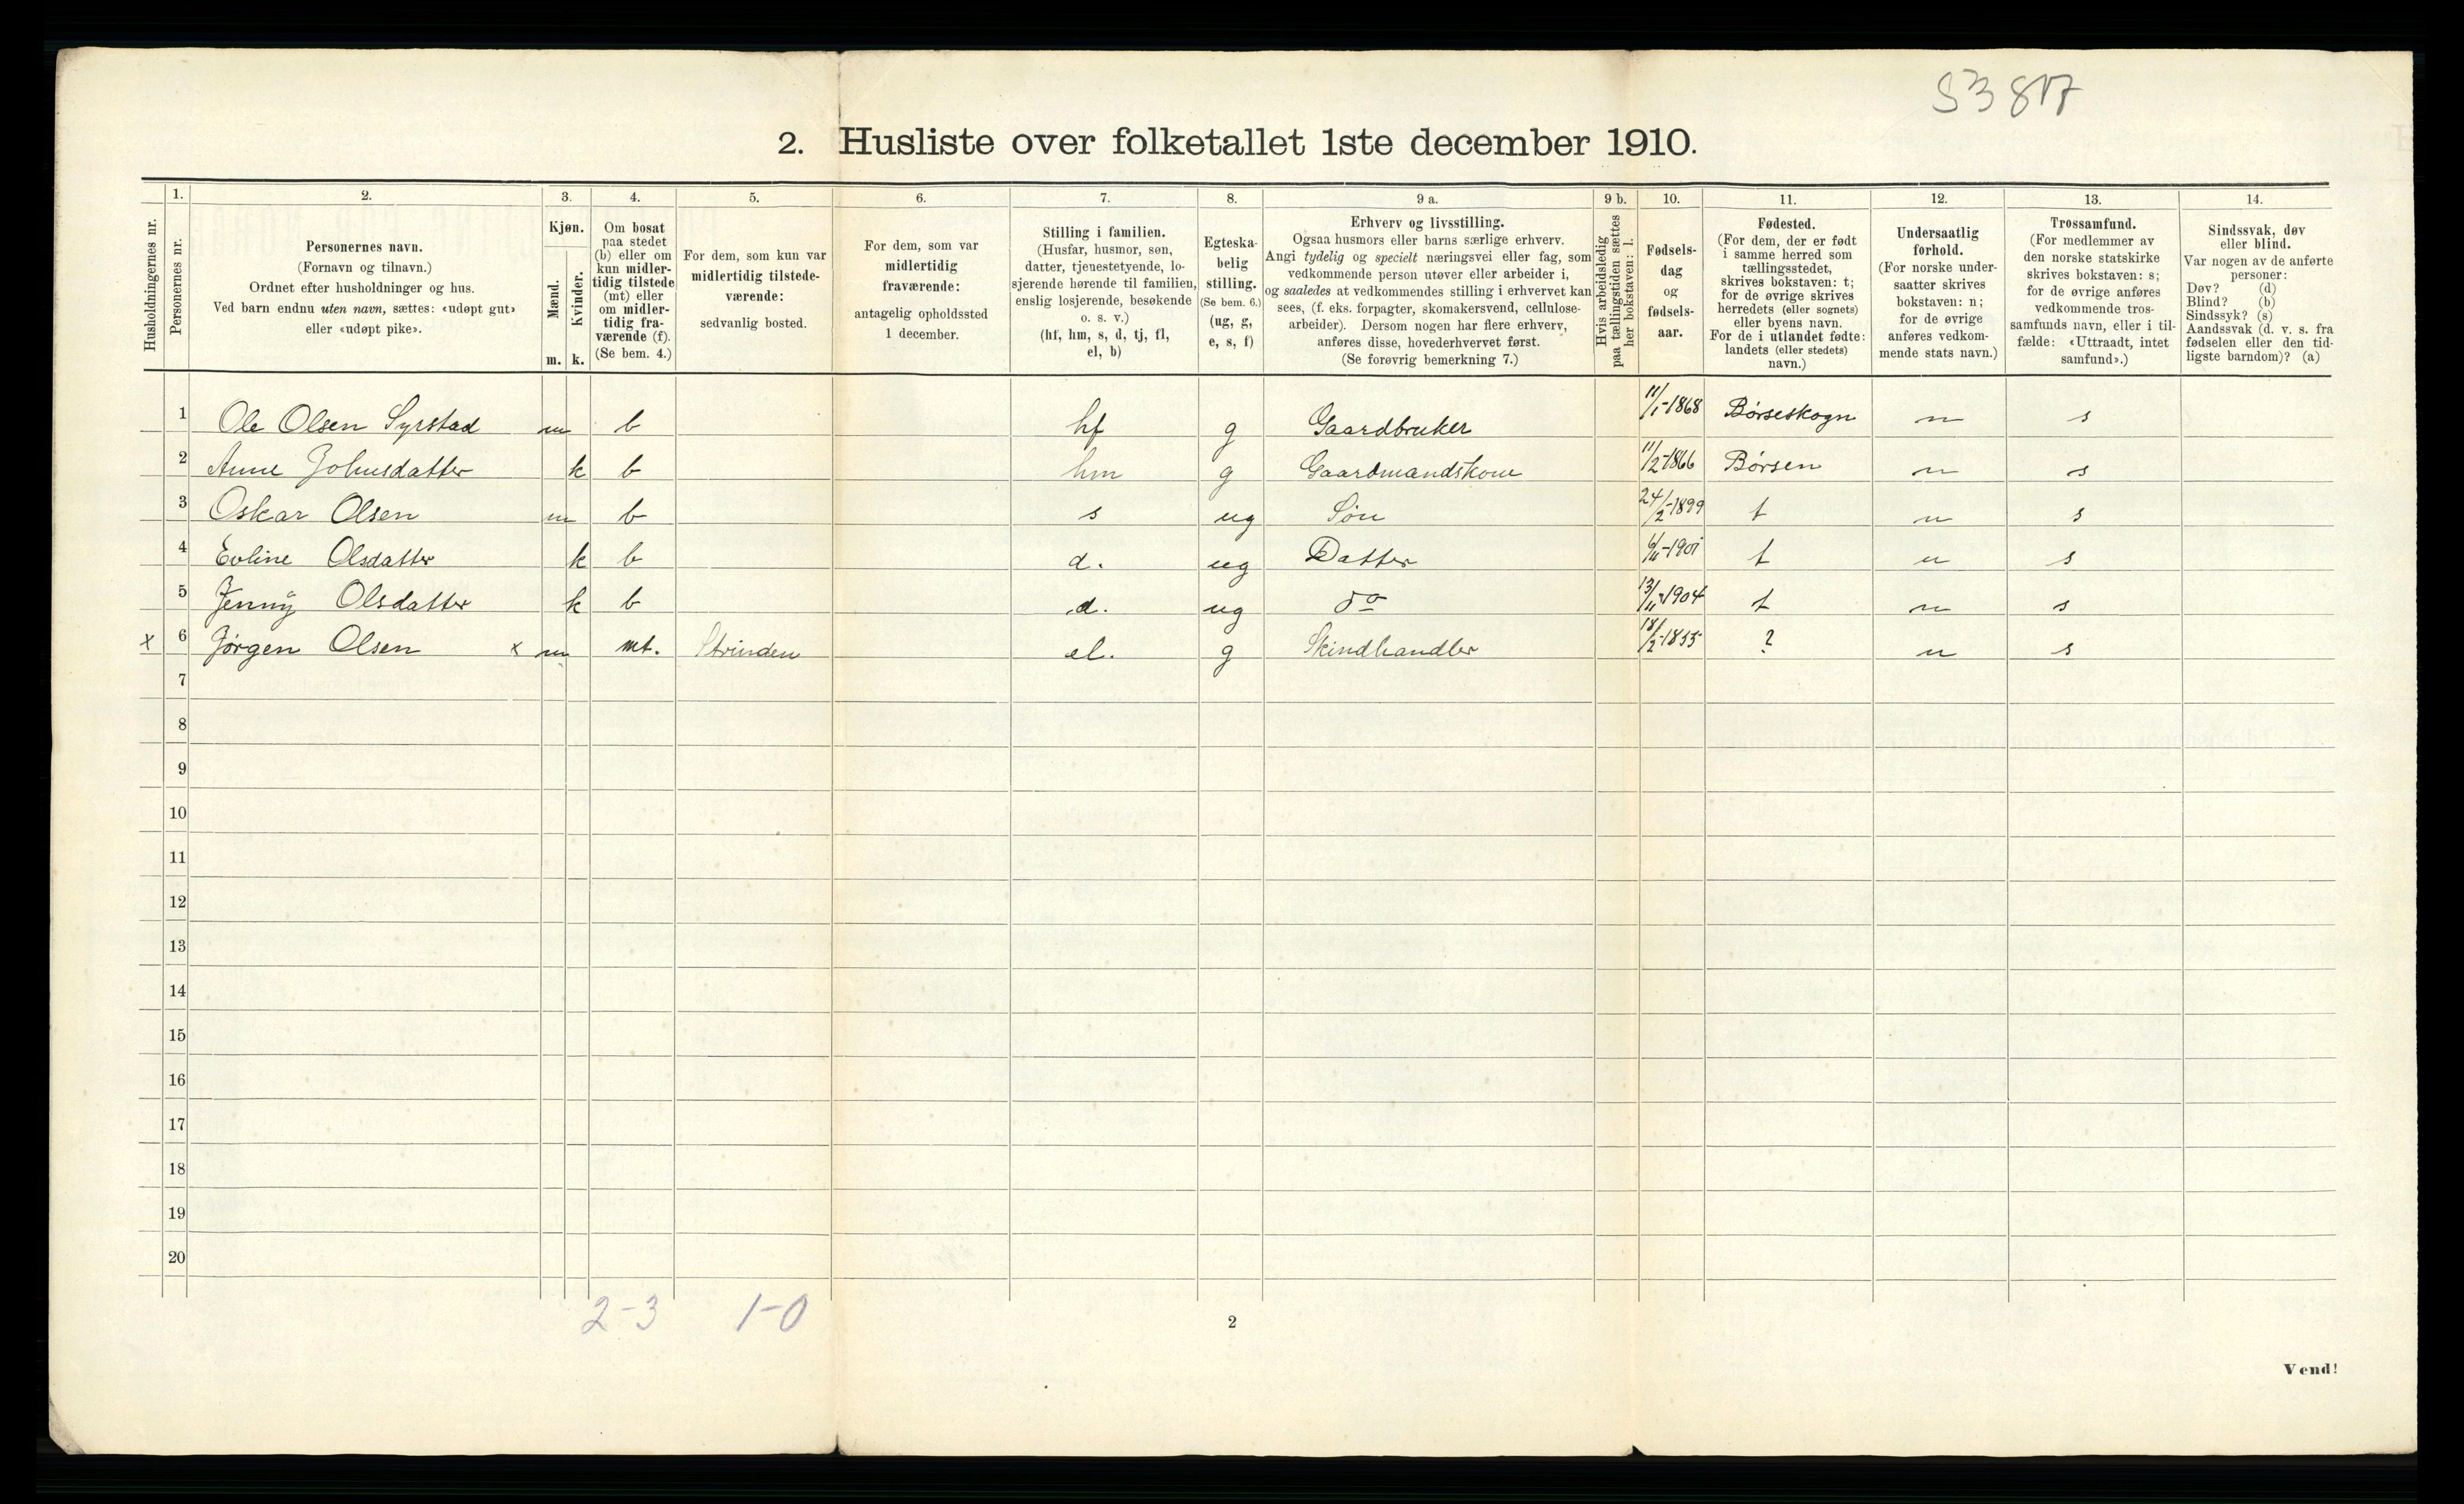 53 817
2. Husliste over folketallet 1ste december 1910.
1. 2. 3. 4. 5. 6. 7. 8. 9 a. 9 b. 10. 11. 12. 13. 14.
Husholdningernes nr.
Personernes nr.
Personernes navn.
(Fornavn og tilnavn.)
Ordnet efter husholdninger og hus.
Ved barn endnu uten navn, sættes: «udøpt gut»
eller «udøpt pike».
Kjøn.
Mænd.
Kvinder.
m. k.
Om bosat
paa stedet
(b) eller om
kun midler-
tidig tilstede
(mt) eller
om midler-
tidig fra-
værende (f).
(Se bem. 4.)
For dem, som kun var
midlertidig tilstede-
værende:
sedvanlig bosted.
For dem, som var
midlertidig
fraværende:
antagelig opholdssted
1 december.
Stilling i familien.
(Husfar, husmor, søn,
datter, tjenestetyende, lo-
sjerende hørende til familien,
enslig losjerende, besøkende
o. s. v.)
(hf, hm, s, d, tj, fl,
el, b)
Egteska-
belig
stilling.
(Se bem. 6.)
(ug, g,
e, s, f)
Erhverv og livsstilling.
Ogsaa husmors eller barns særlige erhverv.
Angi tydelig og specielt næringsvei eller fag, som
vedkommende person utøver eller arbeider i,
og saaledes at vedkommendes stilling i erhvervet kan
sees, (f. eks. forpagter, skomakersvend, cellulose-
arbeider). Dersom nogen har flere erhverv,
anføres disse, hovederhvervet først.
(Se forøvrig bemerkning 7.)
Hvis arbeidsledig
paa tællingstiden sættes
her bokstaven: l.
Fødsels-
dag
og
fødsels-
aar.
Fødested.
(For dem, der er født
i samme herred som
tællingsstedet,
skrives bokstaven: t;
for de øvrige skrives
herredets (eller sognets)
eller byens navn.
For de i utlandet fødte:
landets (eller stedets)
navn.)
Undersaatlig
forhold.
(For norske under-
saatter skrives
bokstaven: n;
for de øvrige
anføres vedkom-
mende stats navn.)
Trossamfund.
(For medlemmer av
den norske statskirke
skrives bokstaven: s;
for de øvrige anføres
vedkommende tros-
samfunds navn, eller i til-
fælde: «Uttraadt, intet
samfund».)
Sindssvak, døv
eller blind.
Var nogen av de anførte
personer:
Døv? (d)
Blind? (b)
Sindssyk? (s)
Aandssvak (d. v. s. fra
fødselen eller den tid-
ligste barndom)? (a)
1 Ole Olsen Syrstad m b hf g Gaardbruker 11/1-1868 Børseskogn n s
2 Anne Johnsdatter k b hm g Gaardmandskone 11/2-1866 Børsen n s
3 Oskar Olsen m b s ug Søn 24/2-1899 t n s
4 Evline Olsdatter k b d. ug Datter 6/11-1901 t n s
5 Jenny Olsdatter k b d. ug do 13/11-1904 t n s
x 6 Jørgen Olsen x m mt. Strinden el. g Skindhandler 18/2-1855 ? n s
7
8
9
10
11
12
13
14
15
16
17
18
19
20
2-3 1-0
2
Vend!